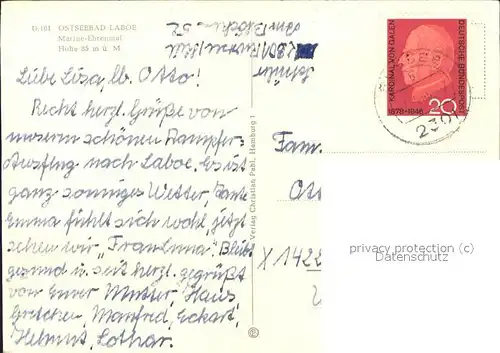 D:181 OSTSEEBAD LABOE
Marine-Ehrenmal
Höhe 85 m ü. M
Liebe Lisa, lb. Otto!
Recht herzl. Grüße von
unserem schönen Dampfer-
Ausflug nach Laboe. Es ist
ganz sonniges Wetter, Tante
Emma fühlt sich wohl, jetzt
sehen wir „Frau Luna“. Bleibt
gesund u. seit herzl. gegrüßt
von Eurer Mutter, Hans
Gretchen Manfred, Eckart,
Helmut, Lothar.
Verlag Christian Pahl, Hamburg 1
KARDINAL VON GALEN
DEUTSCHE BUNDESPOST
1878-1946
20
230
Fam.
Ott
X 1422
privacy protection (c)
Datenschutz